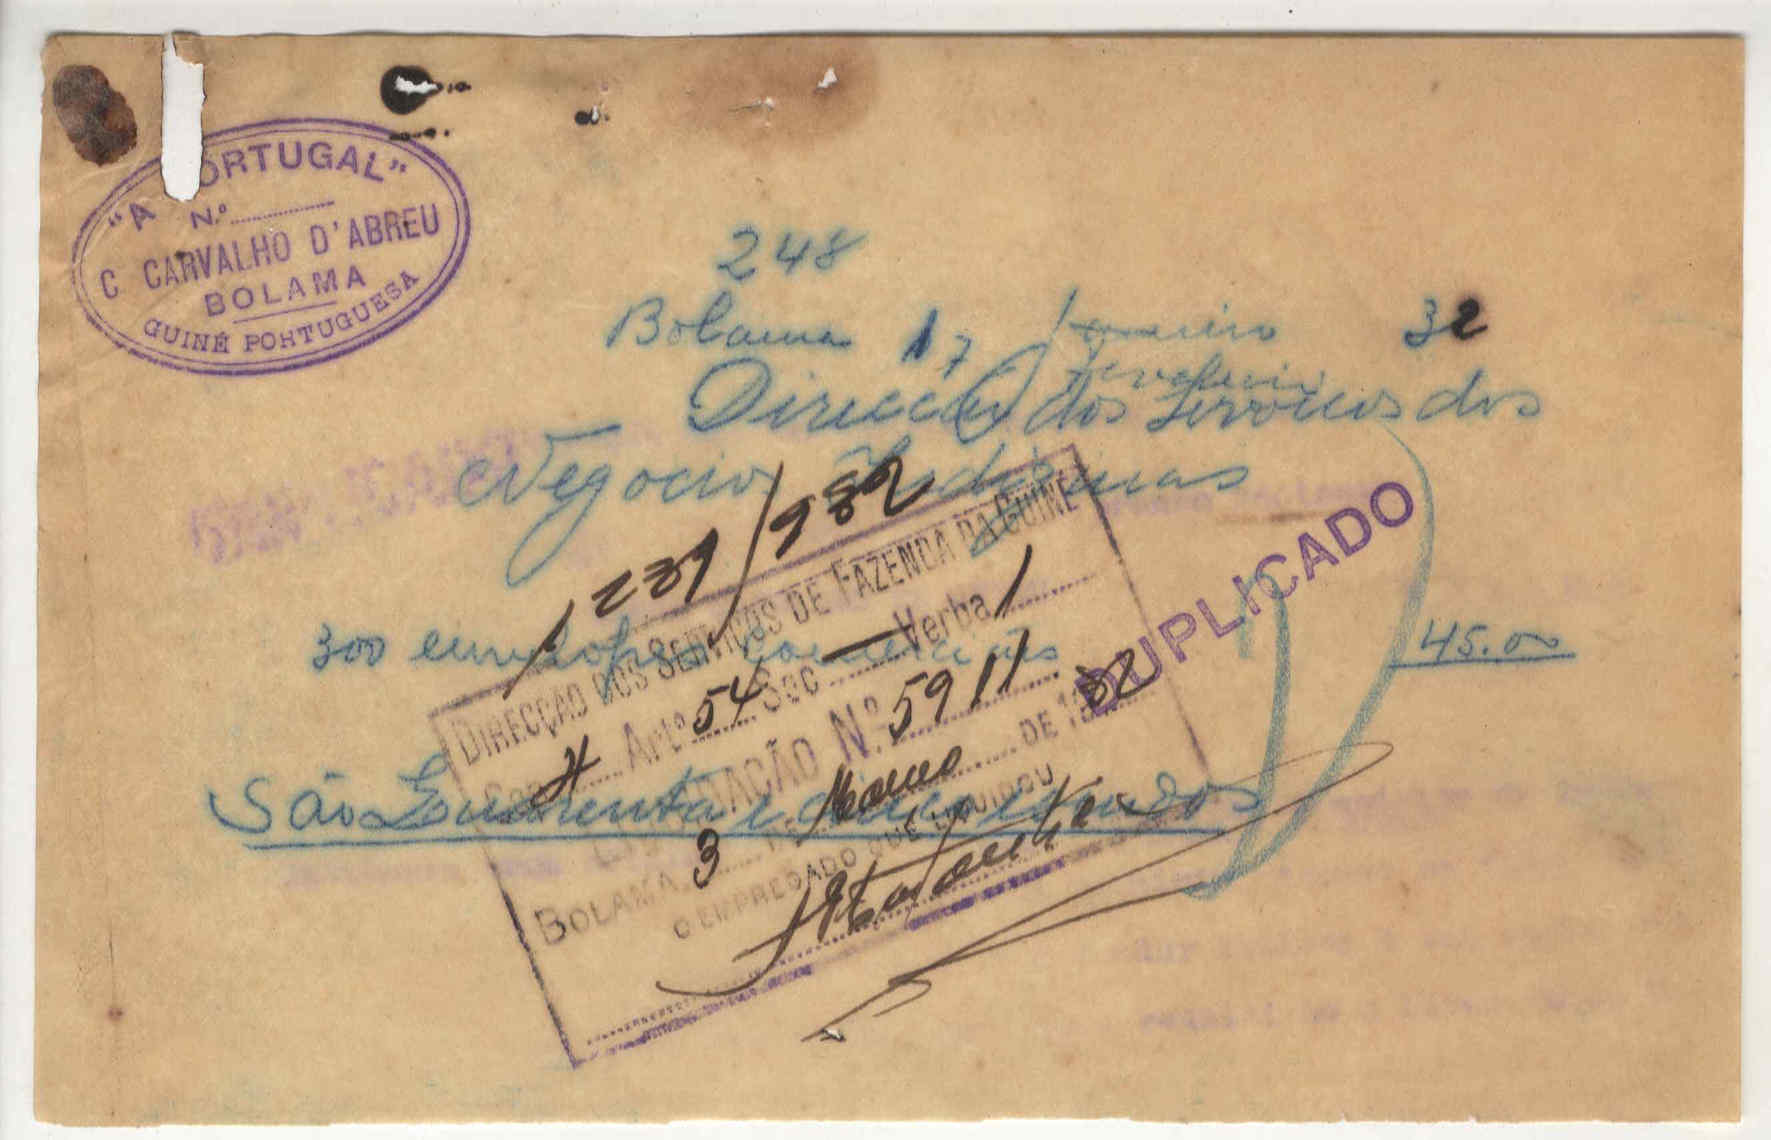 "A PORTUGAL"
N.º
C CARVALHO D'ABREU
BOLAMA
GUINÉ PORTUGUESA
248
Bolama 17 Janeiro 32
Fevereiro
Direcção dos Serviços dos
Negocios Indiginas
1231/932
DUPLICADO
300 envelopes comerciais 45.00
DIRECÇÃO DOS SERVIÇOS DE FAZENDA DA GUINÉ
Cap. Artº 54 Sec — Verba 1
LIQUIDAÇÃO N.º 5911
BOLAMA 3 DE Março DE 1932
O EMPREGADO QUE LIQUIDOU
São Quarenta e cinco escudos